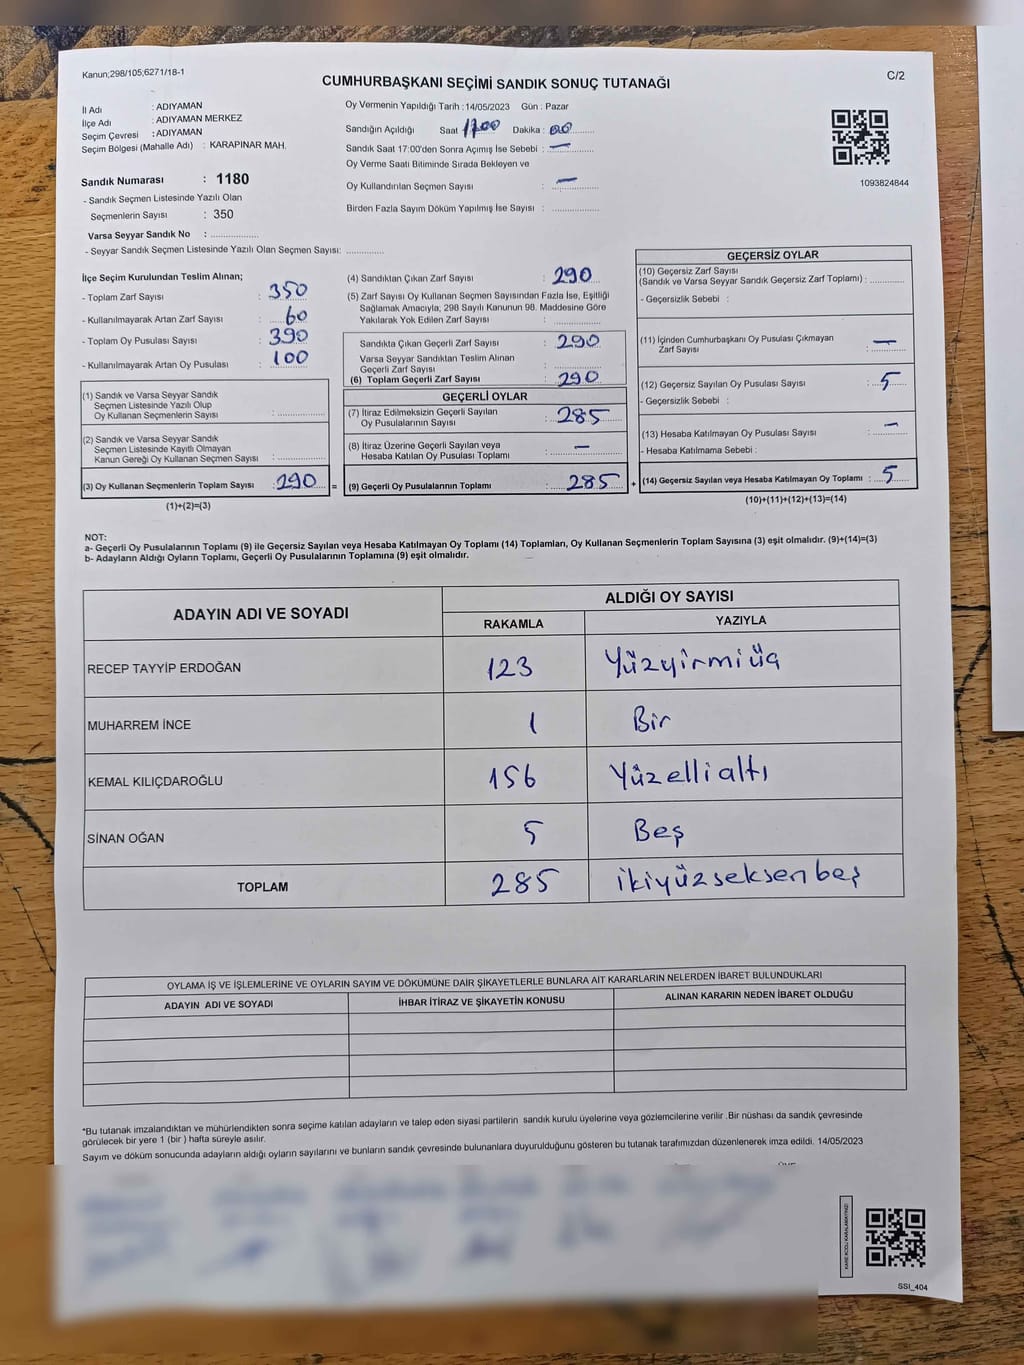 Kanun;298/105;6271/18-1
CUMHURBAŞKANI SEÇİMİ SANDIK SONUÇ TUTANAĞI
C/2
İl Adı : ADIYAMAN
İlçe Adı : ADIYAMAN MERKEZ
Seçim Çevresi : ADIYAMAN
Seçim Bölgesi (Mahalle Adı) : KARAPINAR MAH.
Sandık Numarası : 1180
- Sandık Seçmen Listesinde Yazılı Olan
Seçmenlerin Sayısı : 350
Varsa Seyyar Sandık No : ...............
- Seyyar Sandık Seçmen Listesinde Yazılı Olan Seçmen Sayısı: ............
Oy Vermenin Yapıldığı Tarih : 14/05/2023 Gün : Pazar
Sandığın Açıldığı Saat 17.00 Dakika : 00
Sandık Saat 17:00'den Sonra Açımış İse Sebebi : —
Oy Verme Saati Bitiminde Sırada Bekleyen ve
Oy Kullandırılan Seçmen Sayısı : —
Birden Fazla Sayım Döküm Yapılmış İse Sayısı : ...............
1093824844
İlçe Seçim Kurulundan Teslim Alınan;
- Toplam Zarf Sayısı : 350
- Kullanılmayarak Artan Zarf Sayısı : 60
- Toplam Oy Pusulası Sayısı : 390
- Kullanılmayarak Artan Oy Pusulası : 100
(1) Sandık ve Varsa Seyyar Sandık
Seçmen Listesinde Yazılı Olup
Oy Kullanan Seçmenlerin Sayısı : ...............
(2) Sandık ve Varsa Seyyar Sandık
Seçmen Listesinde Kayıtlı Olmayan
Kanun Gereği Oy Kullanan Seçmen Sayısı : ...............
(3) Oy Kullanan Seçmenlerin Toplam Sayısı : 290 =
(1)+(2)=(3)
(4) Sandıktan Çıkan Zarf Sayısı : 290
(5) Zarf Sayısı Oy Kullanan Seçmen Sayısından Fazla İse, Eşitliği
Sağlamak Amacıyla, 298 Sayılı Kanunun 98. Maddesine Göre
Yakılarak Yok Edilen Zarf Sayısı : ...............
Sandıkta Çıkan Geçerli Zarf Sayısı : 290
Varsa Seyyar Sandıktan Teslim Alınan
Geçerli Zarf Sayısı : ...............
(6) Toplam Geçerli Zarf Sayısı : 290
GEÇERLİ OYLAR
(7) İtiraz Edilmeksizin Geçerli Sayılan
Oy Pusulalarının Sayısı : 285
(8) İtiraz Üzerine Geçerli Sayılan veya
Hesaba Katılan Oy Pusulası Toplamı : —
(9) Geçerli Oy Pusulalarının Toplamı : 285 +
GEÇERSİZ OYLAR
(10) Geçersiz Zarf Sayısı
(Sandık ve Varsa Seyyar Sandık Geçersiz Zarf Toplamı) : ............
- Geçersizlik Sebebi :
(11) İçinden Cumhurbaşkanı Oy Pusulası Çıkmayan
Zarf Sayısı : —
(12) Geçersiz Sayılan Oy Pusulası Sayısı : 5
- Geçersizlik Sebebi :
(13) Hesaba Katılmayan Oy Pusulası Sayısı : —
- Hesaba Katılmama Sebebi :
(14) Geçersiz Sayılan veya Hesaba Katılmayan Oy Toplamı : 5
(10)+(11)+(12)+(13)=(14)
NOT:
a- Geçerli Oy Pusulalarının Toplamı (9) ile Geçersiz Sayılan veya Hesaba Katılmayan Oy Toplamı (14) Toplamları, Oy Kullanan Seçmenlerin Toplam Sayısına (3) eşit olmalıdır. (9)+(14)=(3)
b- Adayların Aldığı Oyların Toplamı, Geçerli Oy Pusulalarının Toplamına (9) eşit olmalıdır.
ADAYIN ADI VE SOYADI
ALDIĞI OY SAYISI
RAKAMLA YAZIYLA
RECEP TAYYİP ERDOĞAN 123 Yüzyirmiüç
MUHARREM İNCE 1 Bir
KEMAL KILIÇDAROĞLU 156 Yüzellialtı
SİNAN OĞAN 5 Beş
TOPLAM 285 ikiyüzseksenbeş
OYLAMA İŞ VE İŞLEMLERİNE VE OYLARIN SAYIM VE DÖKÜMÜNE DAİR ŞİKAYETLERLE BUNLARA AİT KARARLARIN NELERDEN İBARET BULUNDUKLARI
ADAYIN ADI VE SOYADI İHBAR İTİRAZ VE ŞİKAYETİN KONUSU ALINAN KARARIN NEDEN İBARET OLDUĞU
*Bu tutanak imzalandıktan ve mühürlendikten sonra seçime katılan adayların ve talep eden siyasi partilerin sandık kurulu üyelerine veya gözlemcilerine verilir .Bir nüshası da sandık çevresinde
görülecek bir yere 1 (bir ) hafta süreyle asılır.
Sayım ve döküm sonucunda adayların aldığı oyların sayılarını ve bunların sandık çevresinde bulunanlara duyurulduğunu gösteren bu tutanak tarafımızdan düzenlenerek imza edildi. 14/05/2023
KARE KODU KARALAMAYINIZ!
SSI_404